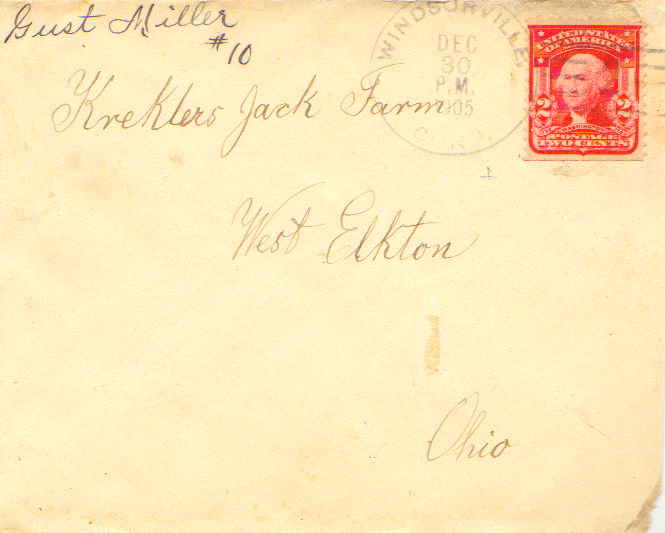 Gust Miller
#10
WINDSORVILLE
DEC
30
P.M.
1905
CONN.
UNITED STATES
OF AMERICA
2 2
POSTAGE
TWO CENTS
Kreklers Jack Farm
West Elkton
Ohio